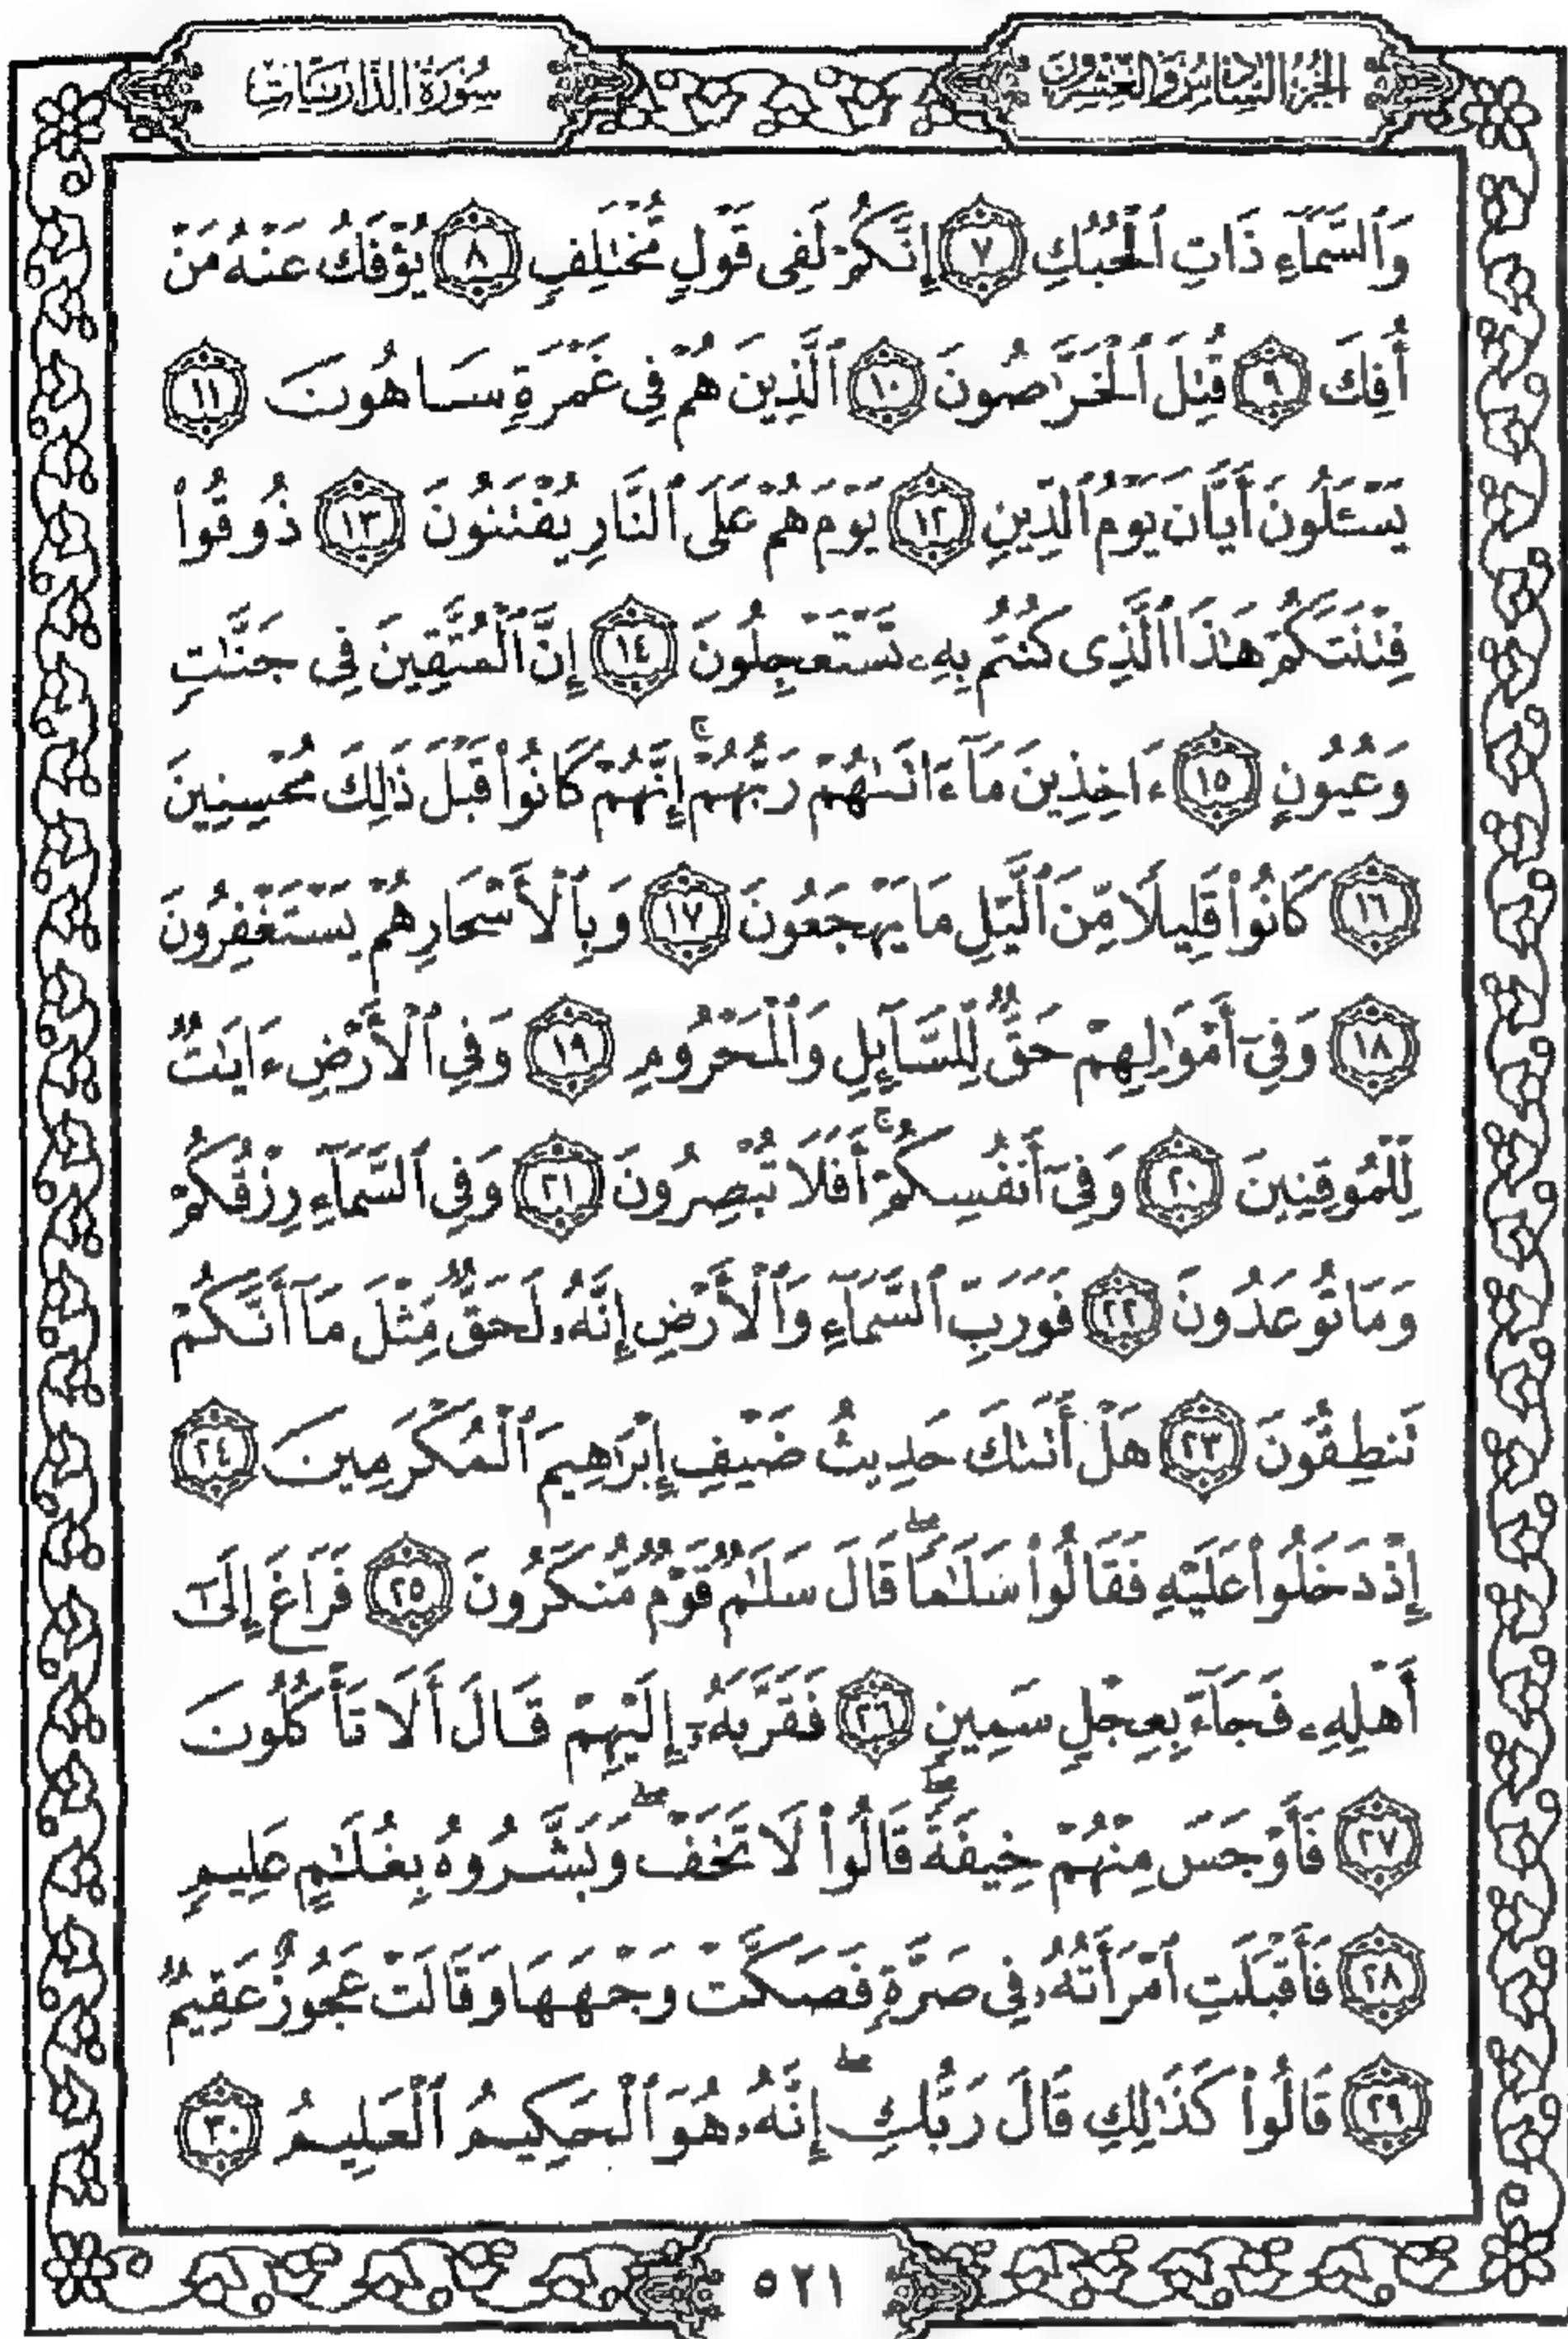 الجزء السادس والعشرون
سورة الذاريات
وَٱلسَّمَآءِ ذَاتِ ٱلْحُبُكِ ﴿٧﴾ إِنَّكُمْ لَفِى قَوْلٍ مُّخْتَلِفٍ ﴿٨﴾ يُؤْفَكُ عَنْهُ مَنْ
أُفِكَ ﴿٩﴾ قُتِلَ ٱلْخَرَّٰصُونَ ﴿١٠﴾ ٱلَّذِينَ هُمْ فِى غَمْرَةٍ سَاهُونَ ﴿١١﴾
يَسْـَٔلُونَ أَيَّانَ يَوْمُ ٱلدِّينِ ﴿١٢﴾ يَوْمَ هُمْ عَلَى ٱلنَّارِ يُفْتَنُونَ ﴿١٣﴾ ذُوقُوا۟
فِتْنَتَكُمْ هَـٰذَا ٱلَّذِى كُنتُم بِهِۦ تَسْتَعْجِلُونَ ﴿١٤﴾ إِنَّ ٱلْمُتَّقِينَ فِى جَنَّـٰتٍ
وَعُيُونٍ ﴿١٥﴾ ءَاخِذِينَ مَآ ءَاتَىٰهُمْ رَبُّهُمْ ۚ إِنَّهُمْ كَانُوا۟ قَبْلَ ذَٰلِكَ مُحْسِنِينَ
﴿١٦﴾ كَانُوا۟ قَلِيلًا مِّنَ ٱلَّيْلِ مَا يَهْجَعُونَ ﴿١٧﴾ وَبِٱلْأَسْحَارِ هُمْ يَسْتَغْفِرُونَ
﴿١٨﴾ وَفِىٓ أَمْوَٰلِهِمْ حَقٌّ لِّلسَّآئِلِ وَٱلْمَحْرُومِ ﴿١٩﴾ وَفِى ٱلْأَرْضِ ءَايَـٰتٌ
لِّلْمُوقِنِينَ ﴿٢٠﴾ وَفِىٓ أَنفُسِكُمْ ۚ أَفَلَا تُبْصِرُونَ ﴿٢١﴾ وَفِى ٱلسَّمَآءِ رِزْقُكُمْ
وَمَا تُوعَدُونَ ﴿٢٢﴾ فَوَرَبِّ ٱلسَّمَآءِ وَٱلْأَرْضِ إِنَّهُۥ لَحَقٌّ مِّثْلَ مَآ أَنَّكُمْ
تَنطِقُونَ ﴿٢٣﴾ هَلْ أَتَىٰكَ حَدِيثُ ضَيْفِ إِبْرَٰهِيمَ ٱلْمُكْرَمِينَ ﴿٢٤﴾
إِذْ دَخَلُوا۟ عَلَيْهِ فَقَالُوا۟ سَلَـٰمًا ۖ قَالَ سَلَـٰمٌ قَوْمٌ مُّنكَرُونَ ﴿٢٥﴾ فَرَاغَ إِلَىٰٓ
أَهْلِهِۦ فَجَآءَ بِعِجْلٍ سَمِينٍ ﴿٢٦﴾ فَقَرَّبَهُۥٓ إِلَيْهِمْ قَالَ أَلَا تَأْكُلُونَ
﴿٢٧﴾ فَأَوْجَسَ مِنْهُمْ خِيفَةً ۖ قَالُوا۟ لَا تَخَفْ ۖ وَبَشَّرُوهُ بِغُلَـٰمٍ عَلِيمٍ
﴿٢٨﴾ فَأَقْبَلَتِ ٱمْرَأَتُهُۥ فِى صَرَّةٍ فَصَكَّتْ وَجْهَهَا وَقَالَتْ عَجُوزٌ عَقِيمٌ
﴿٢٩﴾ قَالُوا۟ كَذَٰلِكِ قَالَ رَبُّكِ ۖ إِنَّهُۥ هُوَ ٱلْحَكِيمُ ٱلْعَلِيمُ ﴿٣٠﴾
٥٢١